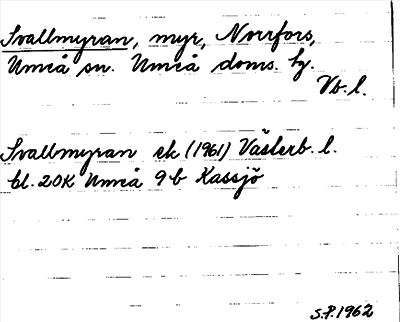 Svallmyran, myr, Norrfors,
Umeå sn. Umeå doms. hg.
Vb. l.
Svallmyran ek (1961) Västerb. l.
bl. 20K Umeå 9b Kassjö
S.P. 1962